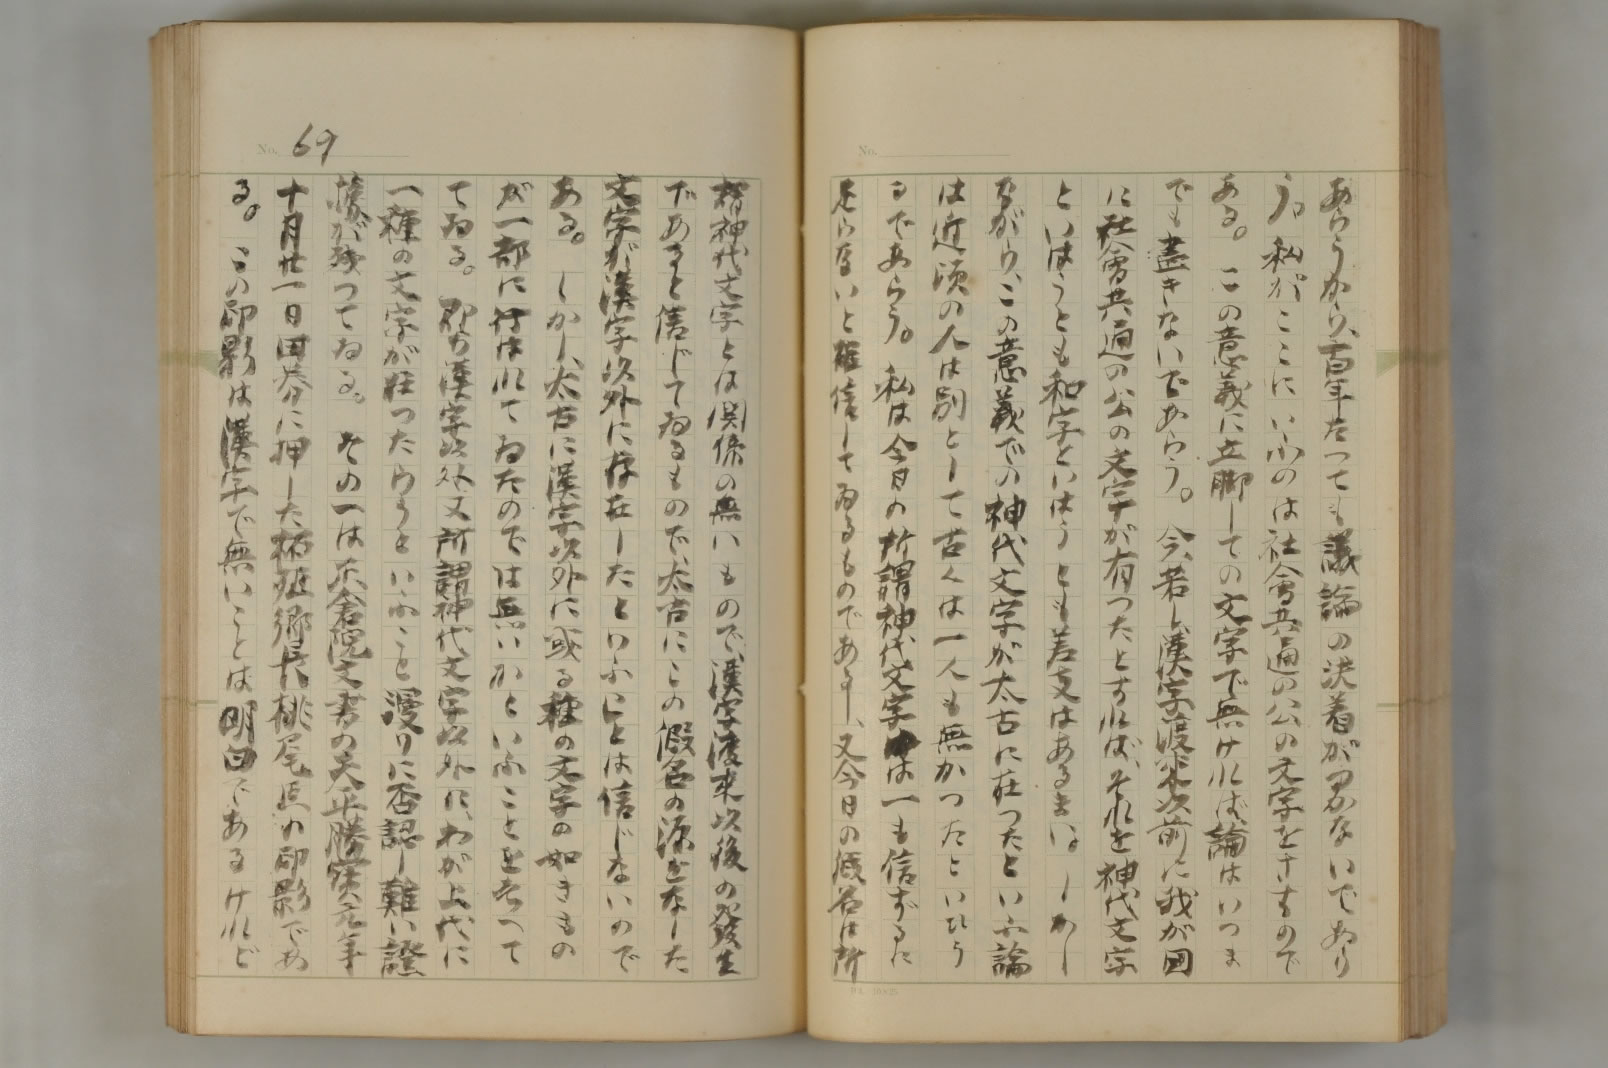 No.
あらうから、百年たつても議論の決着がつかないであら
う。私がここにいふのは社會共通の公の文字をさすもので
ある。この意義に立脚しての文字で無ければ、論はいつま
でも盡きないであらう。今若し漢字渡来以前に我が國
に社會共通の公の文字が有つたとすれば、それを神代文字
といはうとも和字といはうとも差支はあるまい。しかし
ながら、この意義での神代文字が太古に在つたといふ論
は近頃の人は別として古くは一人も無かつたといひう
るであらう。私は今日の所謂神代文字は一も信ずるに
足らないと確信してゐるものであり、又今日の假名は所
No. 69
謂神代文字とは関係の無いもので、漢字渡来以後の發生
であると信じてゐるもので、太古にこの假名の源をなした
文字が漢字以外に存在したといふことは信じないので
ある。しかし、太古に漢字以外に或る種の文字の如きもの
が一部に行はれてゐたのでは無いかといふことを考へて
てゐる。即ち漢字以外又所謂神代文字以外に、わが上代に
一種の文字が在つたらうといふこと漫りに否認し難い證
據が残つてゐる。その一は正倉院文書の天平勝寳元年
十月廿一日田券に押した柘殖郷長桃尾臣の印影であ
る。この印影は漢字で無いことは明白であるけれど
B4. 10×25